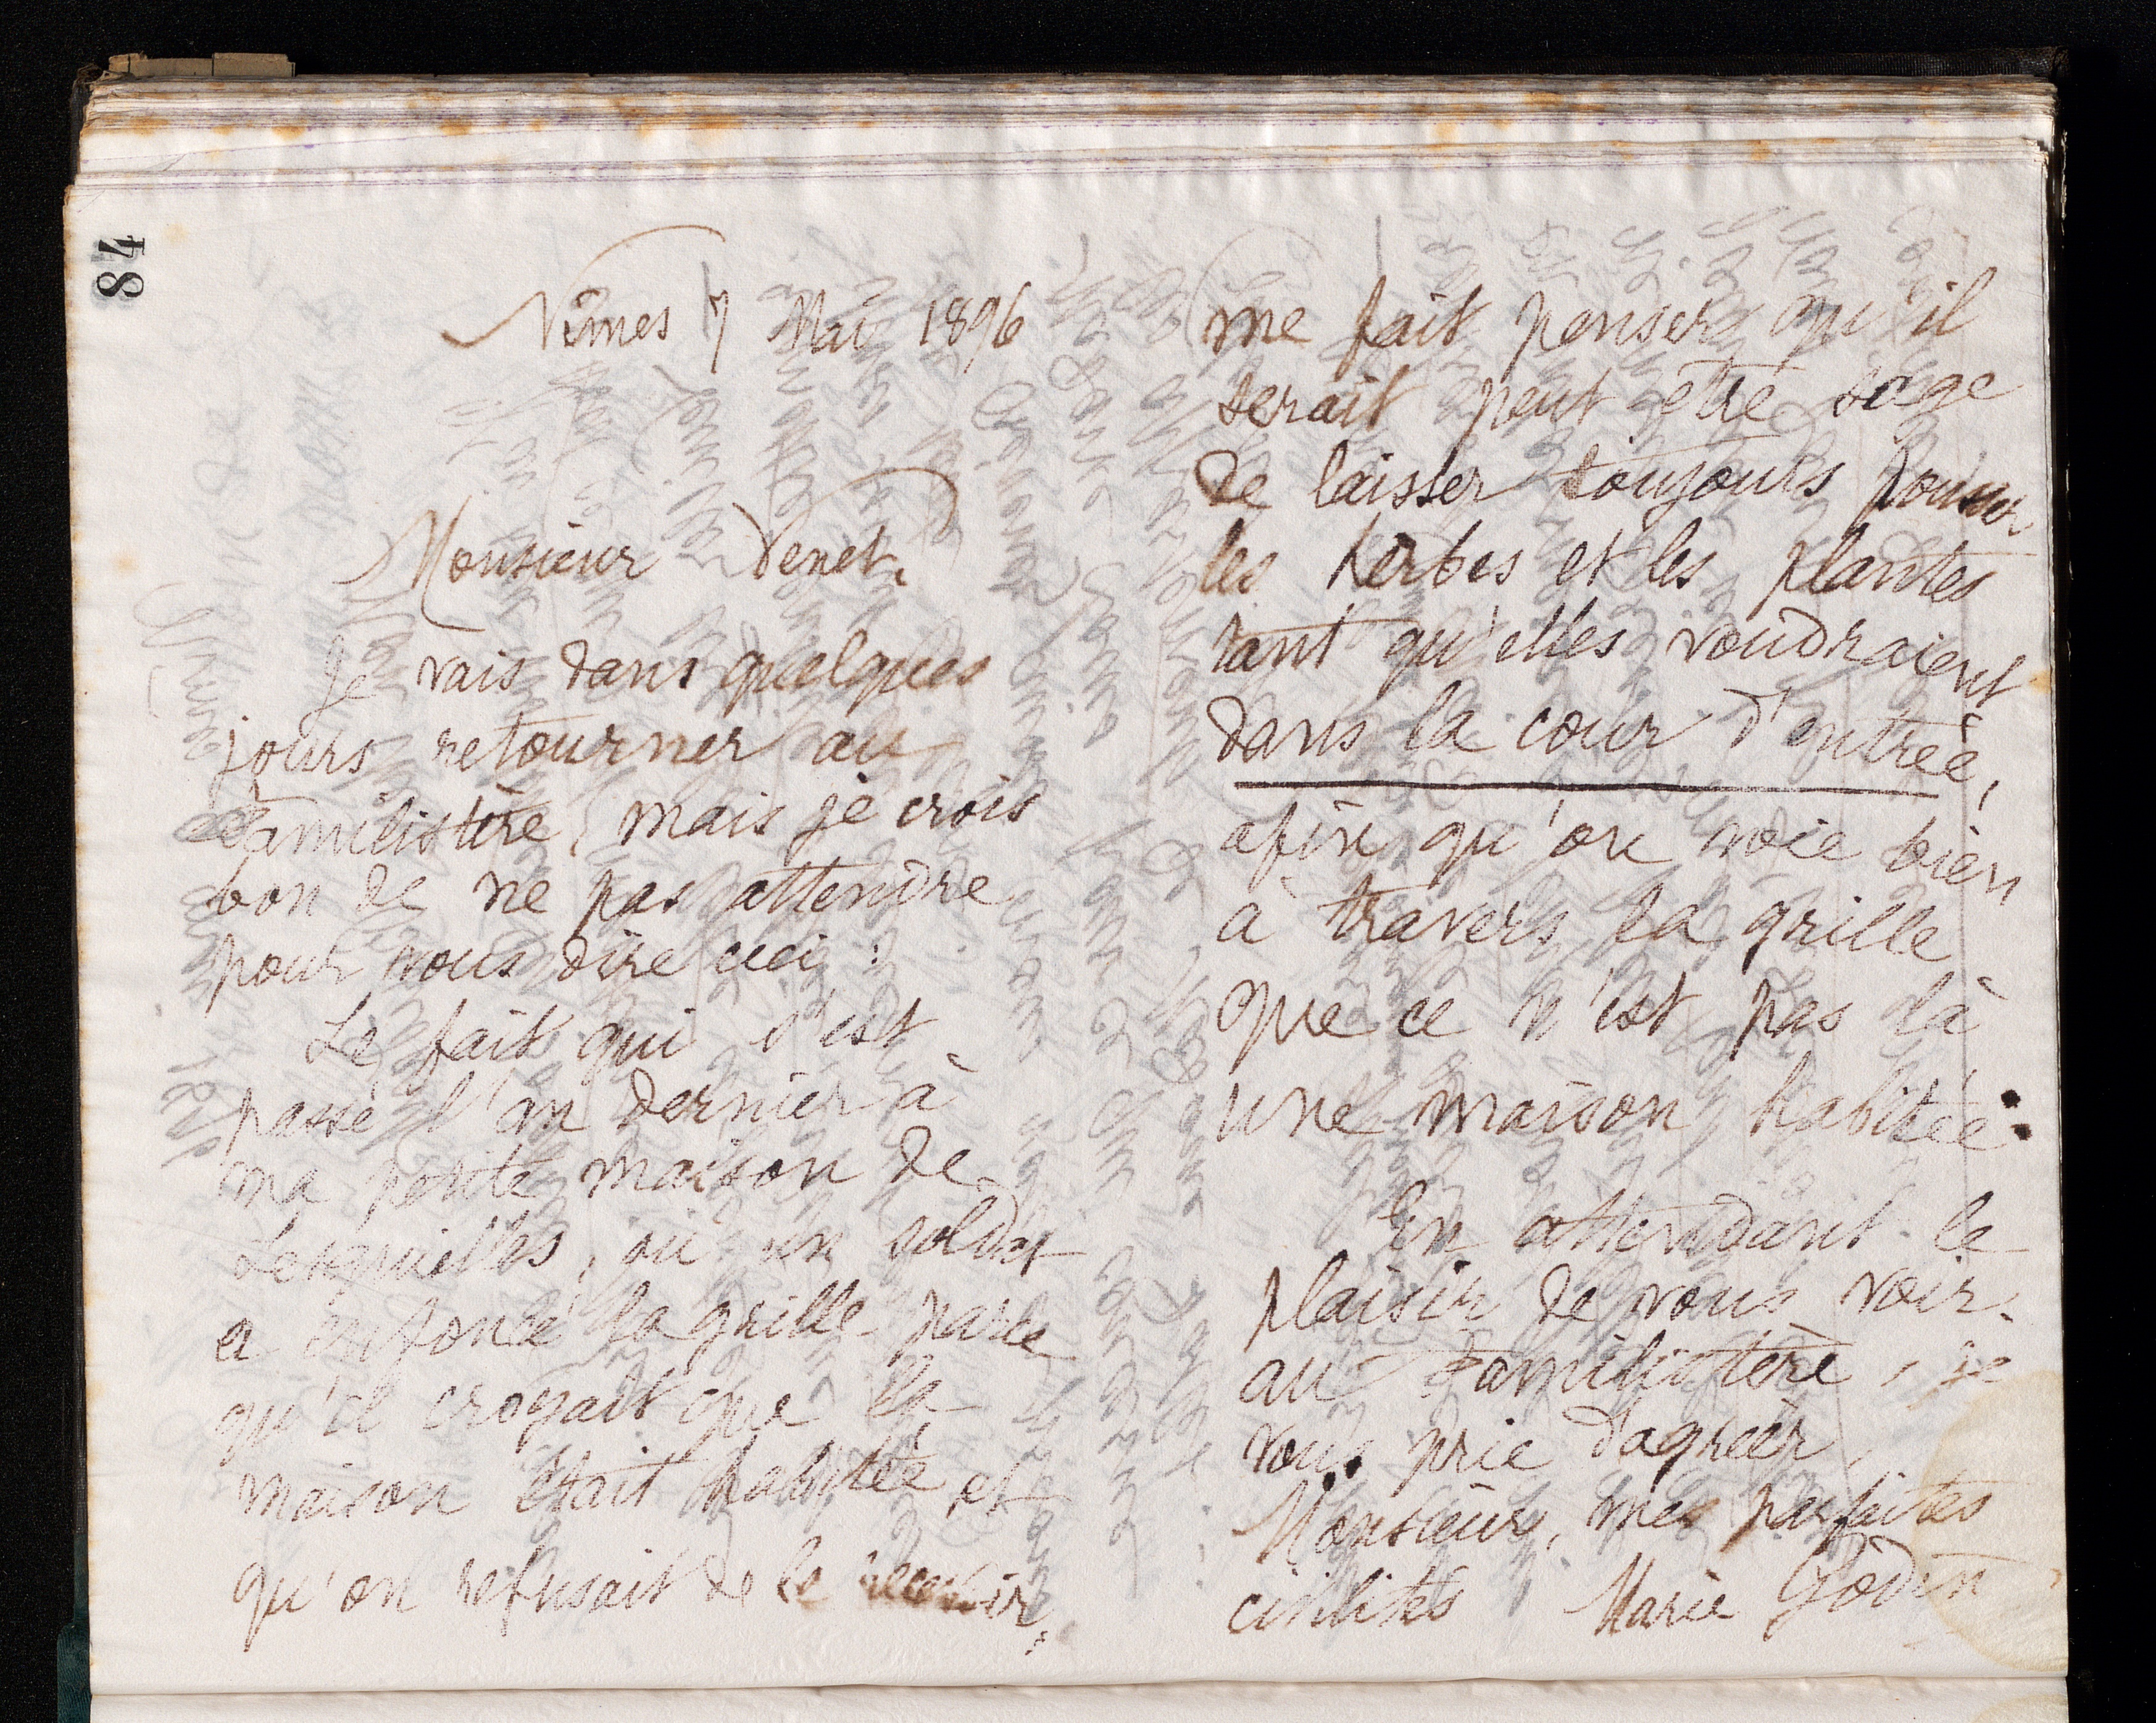 48
Nîmes 7 Mai 1896
Monsieur Venet,
Je vais dans quelques
jours retourner au
Familistère, mais je crois
bon de ne pas attendre
pour vous dire ceci :
Le fait qui s'est
passé l'an dernier à
ma petite maison de
Lesquielles, où un soldat
a enfoncé la grille parce
qu'il croyait que la
maison était habitée et
qu'on refusait de le recevoir,
me fait penser qu'il
serait peut être sage
de laisser toujours pousser
les herbes et les plantes
tant qu'elles voudraient
dans la cour d'entrée,
afin qu'on voie bien
à travers la grille
que ce n'est pas là
une maison habitée.
En attendant le
plaisir de vous voir
au Familistère, je
vous prie d'agréer,
Monsieur, mes parfaites
civilités Marie Godin